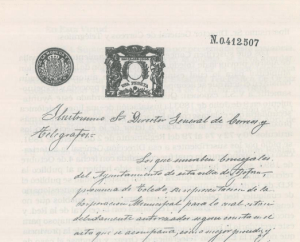 N.0.412.507
Ilustrisimo Sr Director General de Correos y
Telégrafos.-
Los que suscriben Concejales
del Ayuntamiento de esta villa de
provincia de Toledo, en representación de la
Corporación Municipal para lo cual están
debidamente autorizados según consta en el
acta que se acompaña, como mejor proceda y